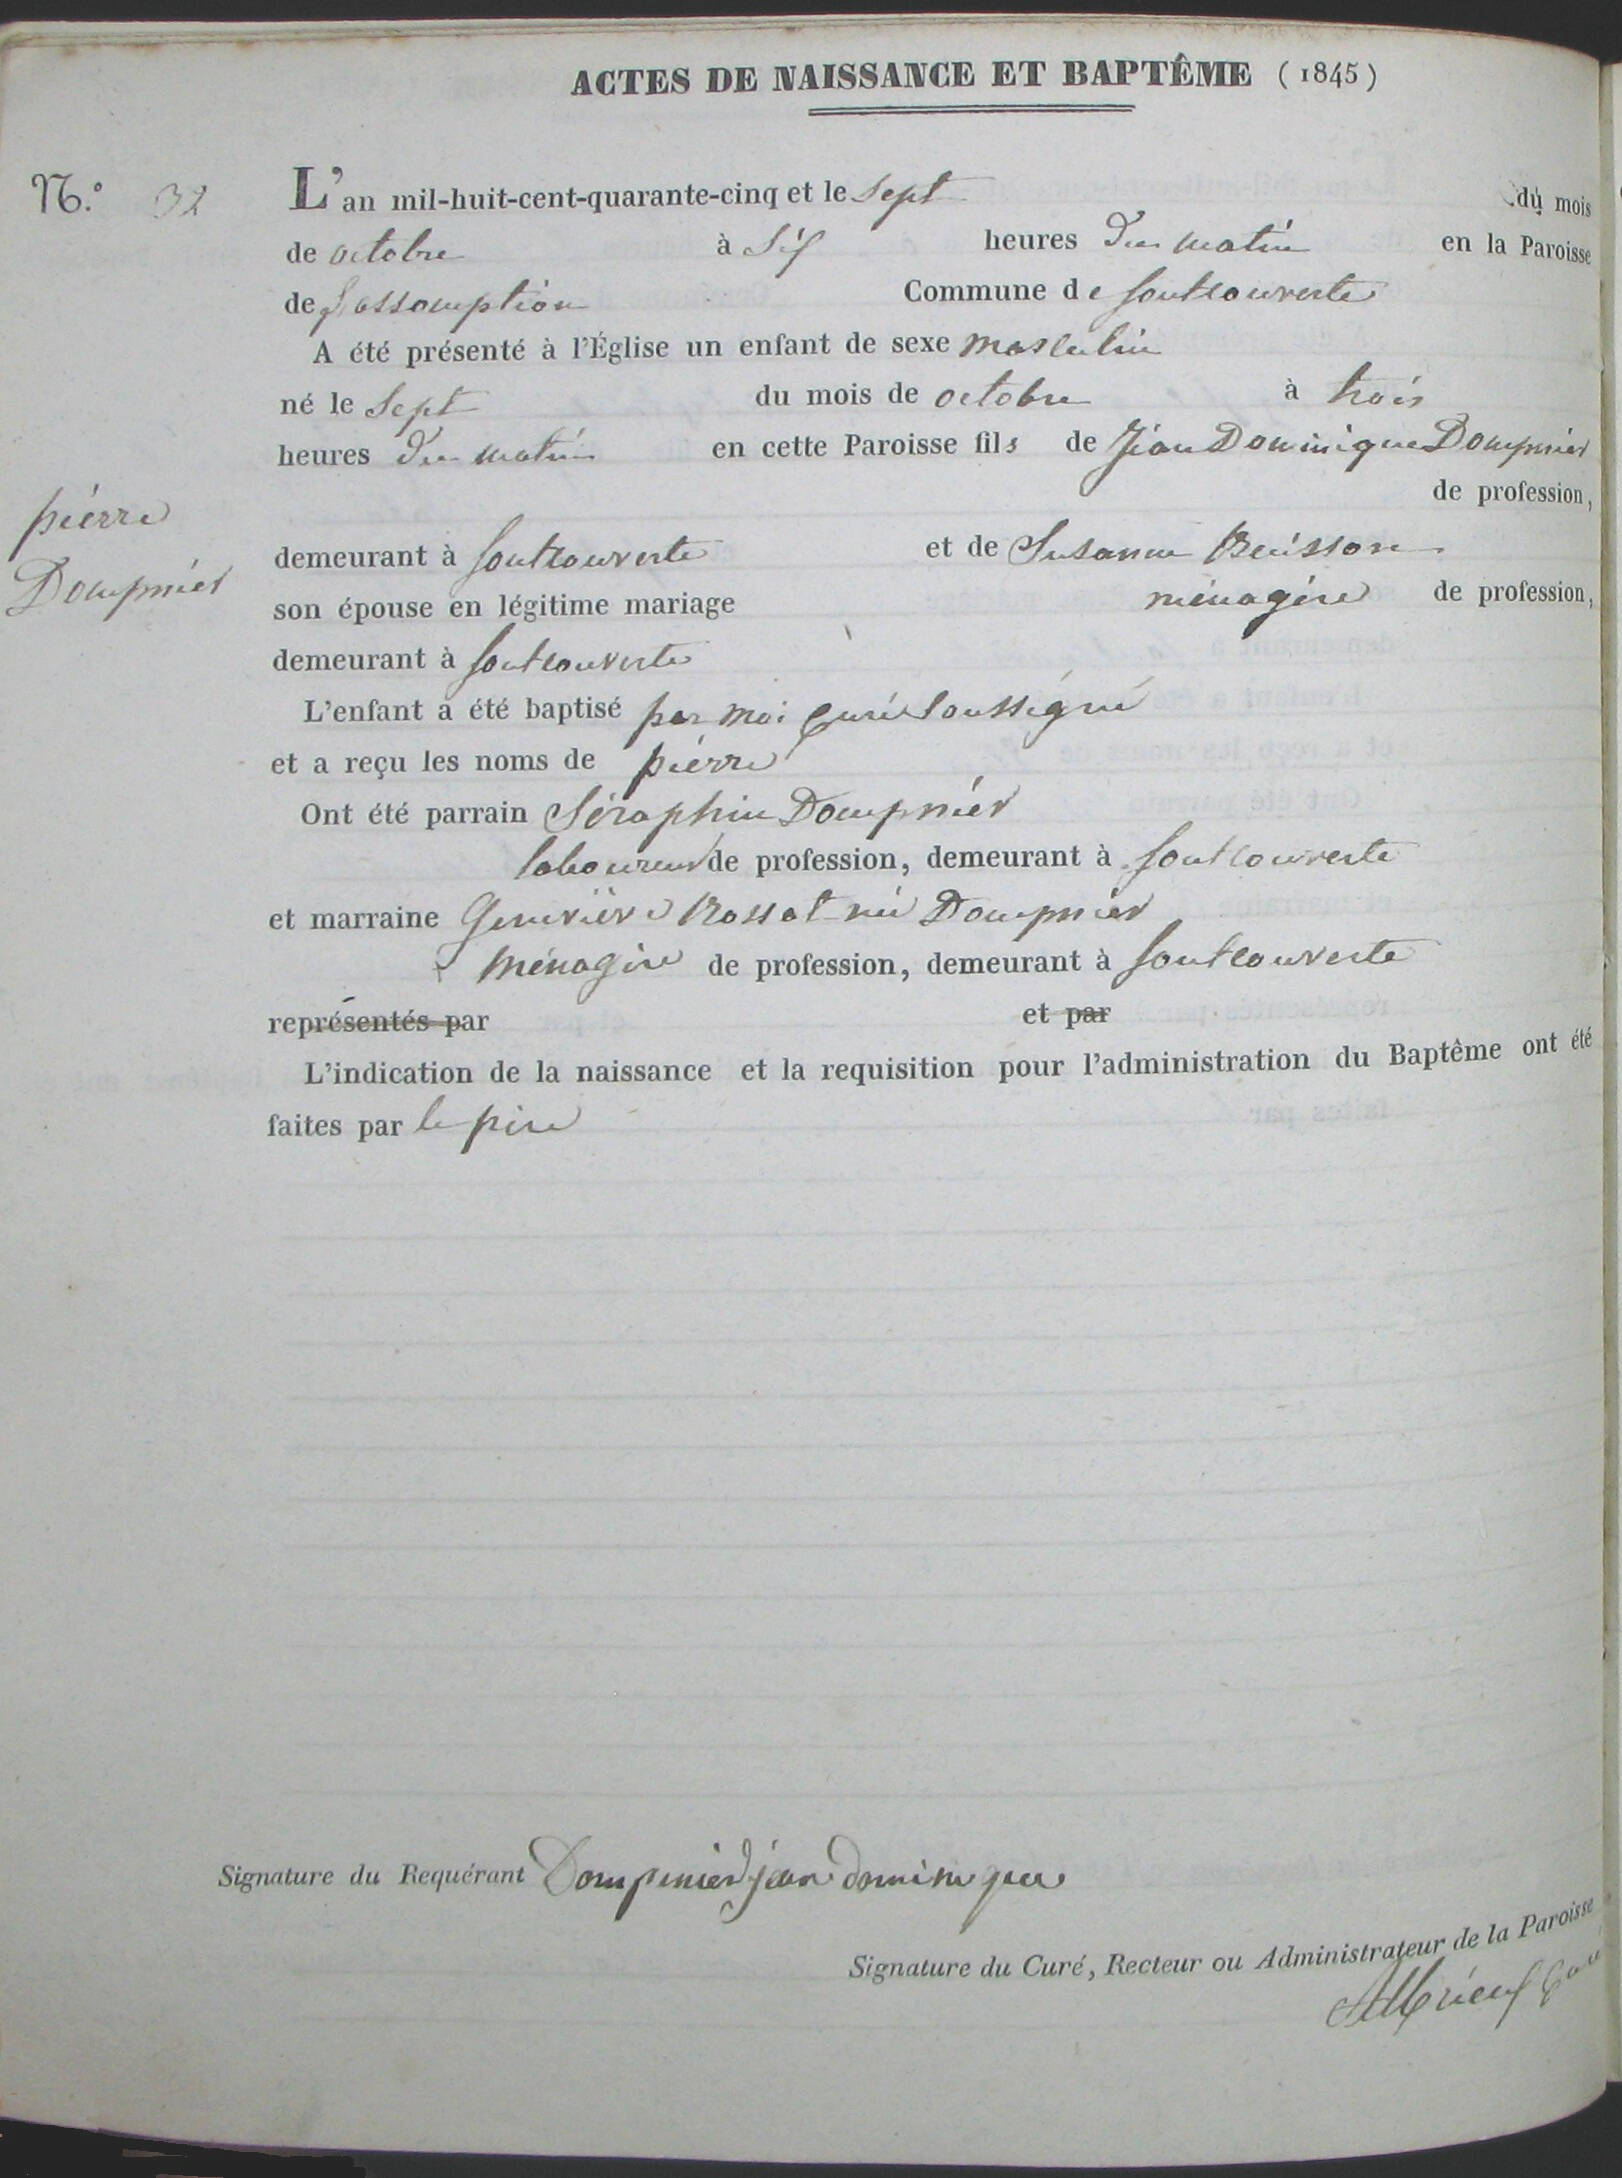 ACTES DE NAISSANCE ET BAPTÊME (1845)
N.° 32
L'an mil-huit-cent-quarante-cinq et le sept du mois
de octobre à six heures du matin en la Paroisse
de l'assomption Commune de fontcouverte
A été présenté à l'Église un enfant de sexe masculin
né le sept du mois de octobre à trois
heures du matin en cette Paroisse fils de Jean Dominique Dompnier
de profession,
pierre
Dompnier
demeurant à fontcouverte et de Susanne Buisson
son épouse en légitime mariage ménagère de profession,
demeurant à fontcouverte
L'enfant a été baptisé par moi Curé soussigné
et a reçu les noms de pierre
Ont été parrain Séraphin Dompnier
laboureur de profession, demeurant à fontcouverte
et marraine Geneviève Rossat née Dompnier
ménagère de profession, demeurant à fontcouverte
représentés par et par
L'indication de la naissance et la requisition pour l'administration du Baptême ont été
faites par le père
Signature du Requérant Dompnier jean dominique
Signature du Curé, Recteur ou Administrateur de la Paroisse